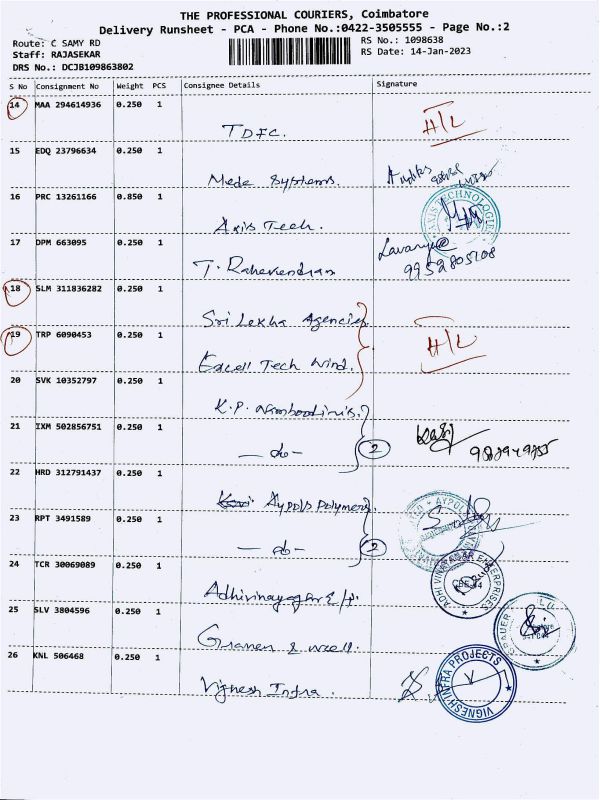 THE PROFESSIONAL COURIERS, Coimbatore
Delivery Runsheet - PCA - Phone No.:0422-3505555 - Page No.:2
Route: C SAMY RD
Staff: RAJASEKAR
DRS No.: DCJB109863802
RS No.: 1098638
RS Date: 14-Jan-2023
S No Consignment No Weight PCS Consignee Details Signature
14 MAA 294614936 0.250 1
TDFC. H/L
15 EDQ 23796634 0.250 1
Mede Systems.
16 PRC 13261166 0.850 1
Axis Tech. AXIS TECHNOLOGIES
17 DPM 663095 0.250 1
T. Rahavendran Lavanya
9952805208
18 SLM 311836282 0.250 1
Sri Lekha Agencies
19 TRP 6090453 0.250 1
Excell Tech Wind. H/L
20 SVK 10352797 0.250 1
K.P. Namboodiris.
21 IXM 502856751 0.250 1
— do — 2
22 HRD 312791437 0.250 1
Aypols Polymers
23 RPT 3491589 0.250 1
— do — 2
24 TCR 30069089 0.250 1
Adhivinayagar E/p. ADHI VINAYAGAR ENTERPRISES
25 SLV 3804596 0.250 1
26 KNL 506468 0.250 1
Vignesh Infra. VIGNESH INFRA PROJECTS